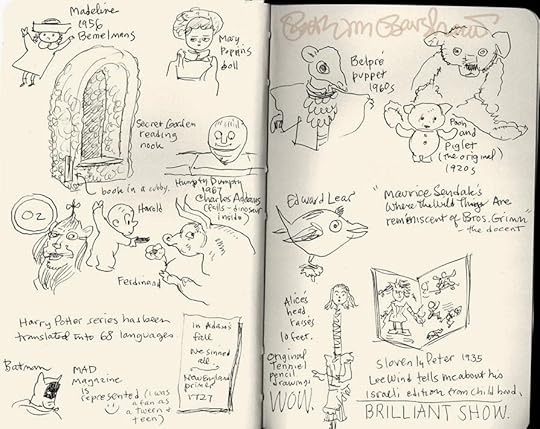 Madeline
1956
Bemelmans
Mary
Poppins
doll
Secret Garden
reading
nook
book in a cubby.
Humpty Dumpty
1967
Charles Addams
inside)
OZ
Harold
Ferdinand
Harry Potter series has been
translated into 68 languages.
Batman
MAD
Magazine
is
represented (I was
a fan as
a tween &
teen)
In Adam's
Fall
We sinned
all
New England
primer
1727
Belpré
puppet
1960s
Pooh
and
Piglet
(the original)
1920s
Edward Lear
"Maurice Sendak's
Where The Wild Things Are
reminiscent of Bros. Grimm"
- the docent
Alice's
head
raises
10 feet.
Original
Tenniel
pencil
drawings
WOW.
Slovenly Peter 1935
Lee Wind tells me about his
Israeli edition from childhood.
BRILLIANT SHOW.